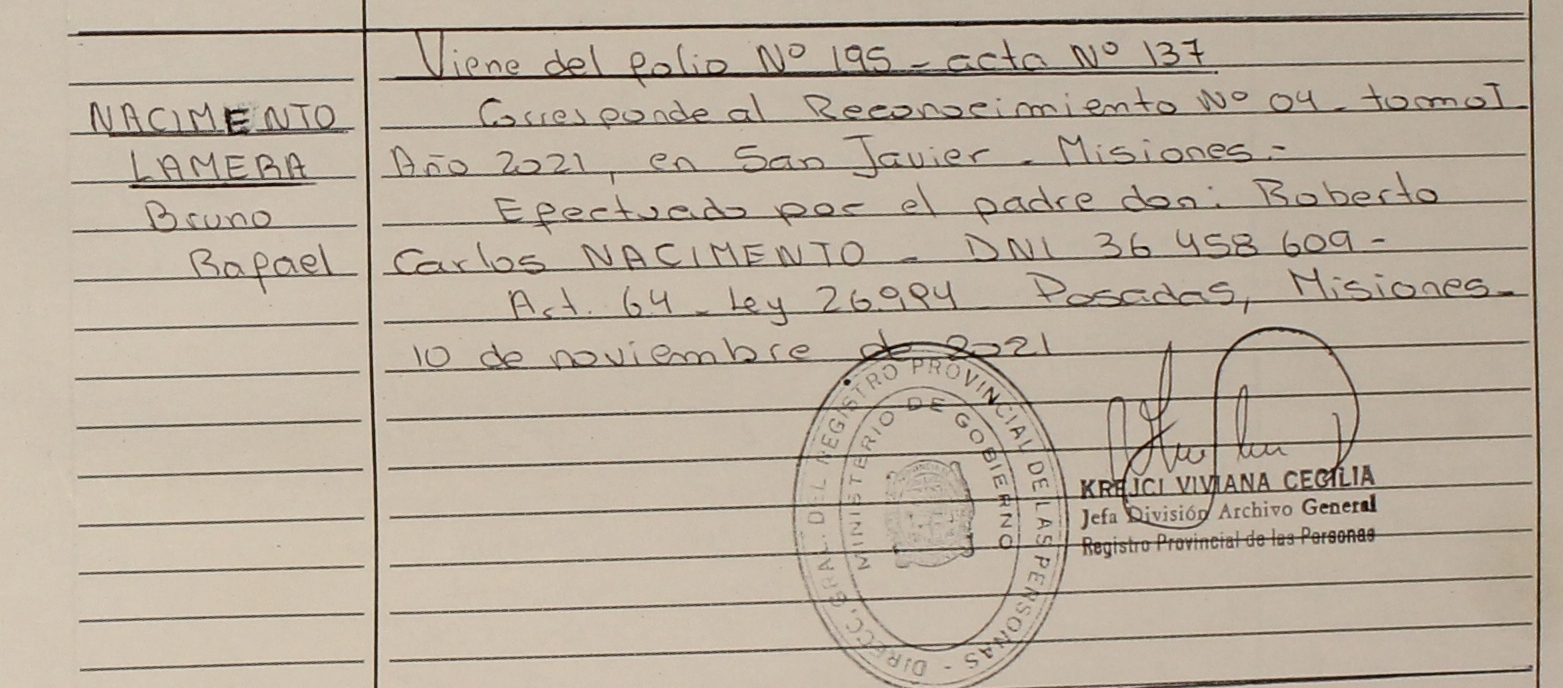 Viene del folio Nº 195 - acta Nº 137
NACIMENTO
LAMERA
Bruno
Rafael
Corresponde al Reconocimiento Nº 04 - tomo I
Año 2021, en San Javier - Misiones.-
Efectuado por el padre don: Roberto
Carlos NACIMENTO - DNI 36 458 609 -
Art. 64 - Ley 26.994 Posadas, Misiones -
10 de noviembre de 2021
DIRECC. GRAL. DEL REGISTRO PROVINCIAL DE LAS PERSONAS -
MINISTERIO DE GOBIERNO
KREJCI VIVIANA CECILIA
Jefa División Archivo General
Registro Provincial de las Personas